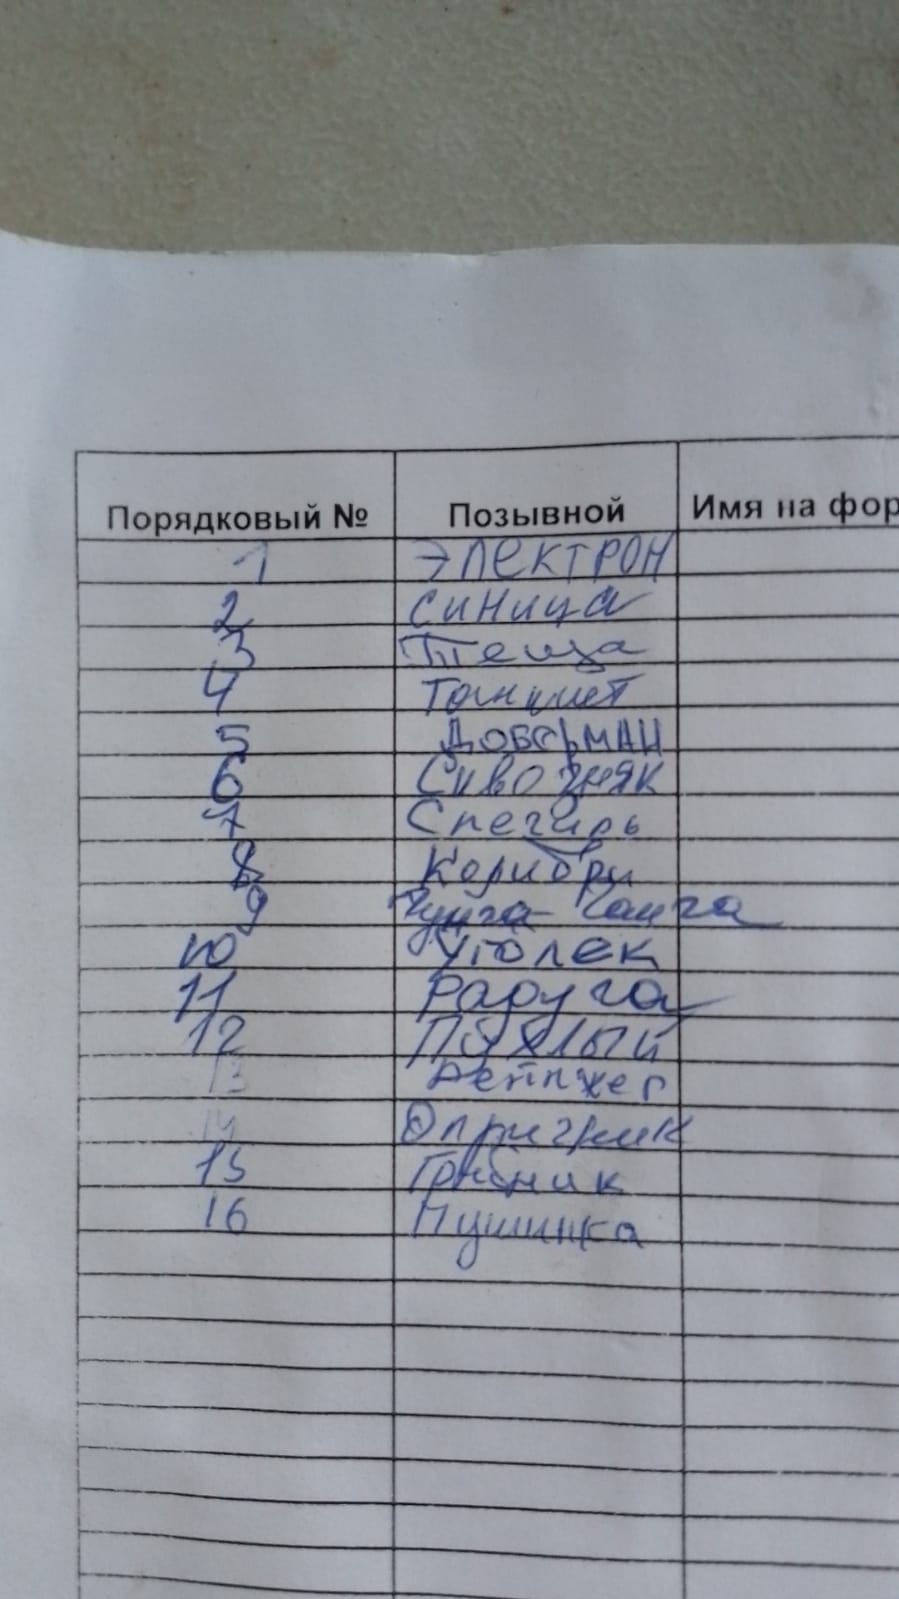 Порядковый № Позывной Имя на фор
1 ЭЛЕКТРОН
2 Синица
3 Теща
4
5 ДОБЕРМАН
6 Сквозняк
7 Снегирь
8 Колибри
9 Чунга-Чанга
10 Уголек
11 Радуга
12 Пухлый
13
14 Опричник
15 Грибник
16 Пушинка